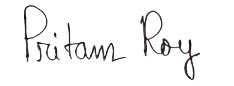 Pritam Roy